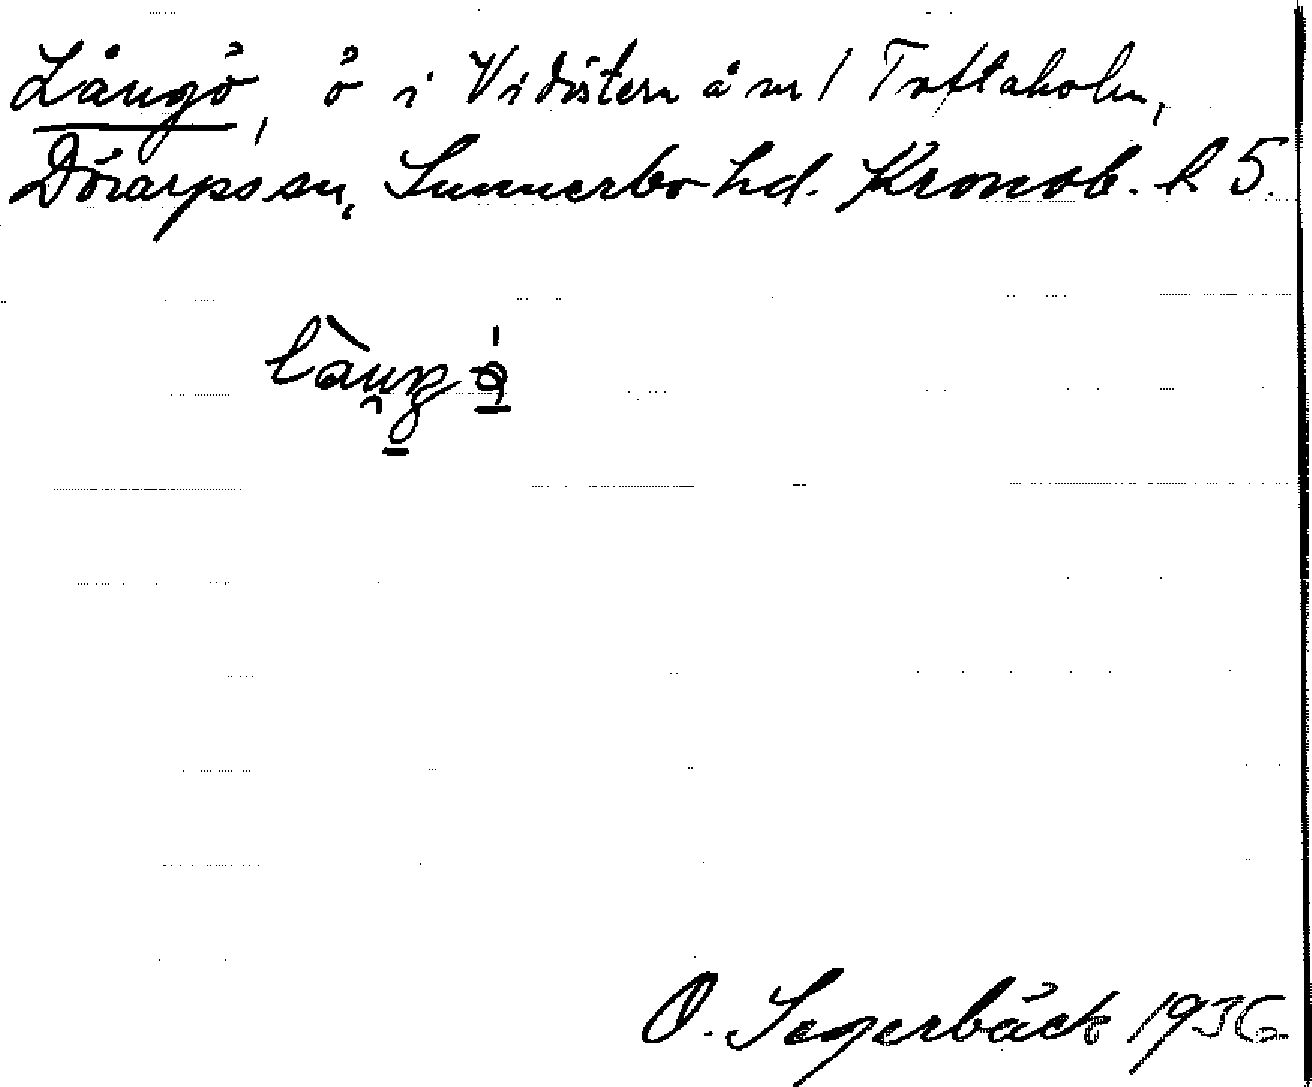 Långö, ö i Vidöstern å nr 1 Toftaholm,
Dörarps sn, Sunnerbo hd. Kronob. l 5.
O. Segerbäck 1936